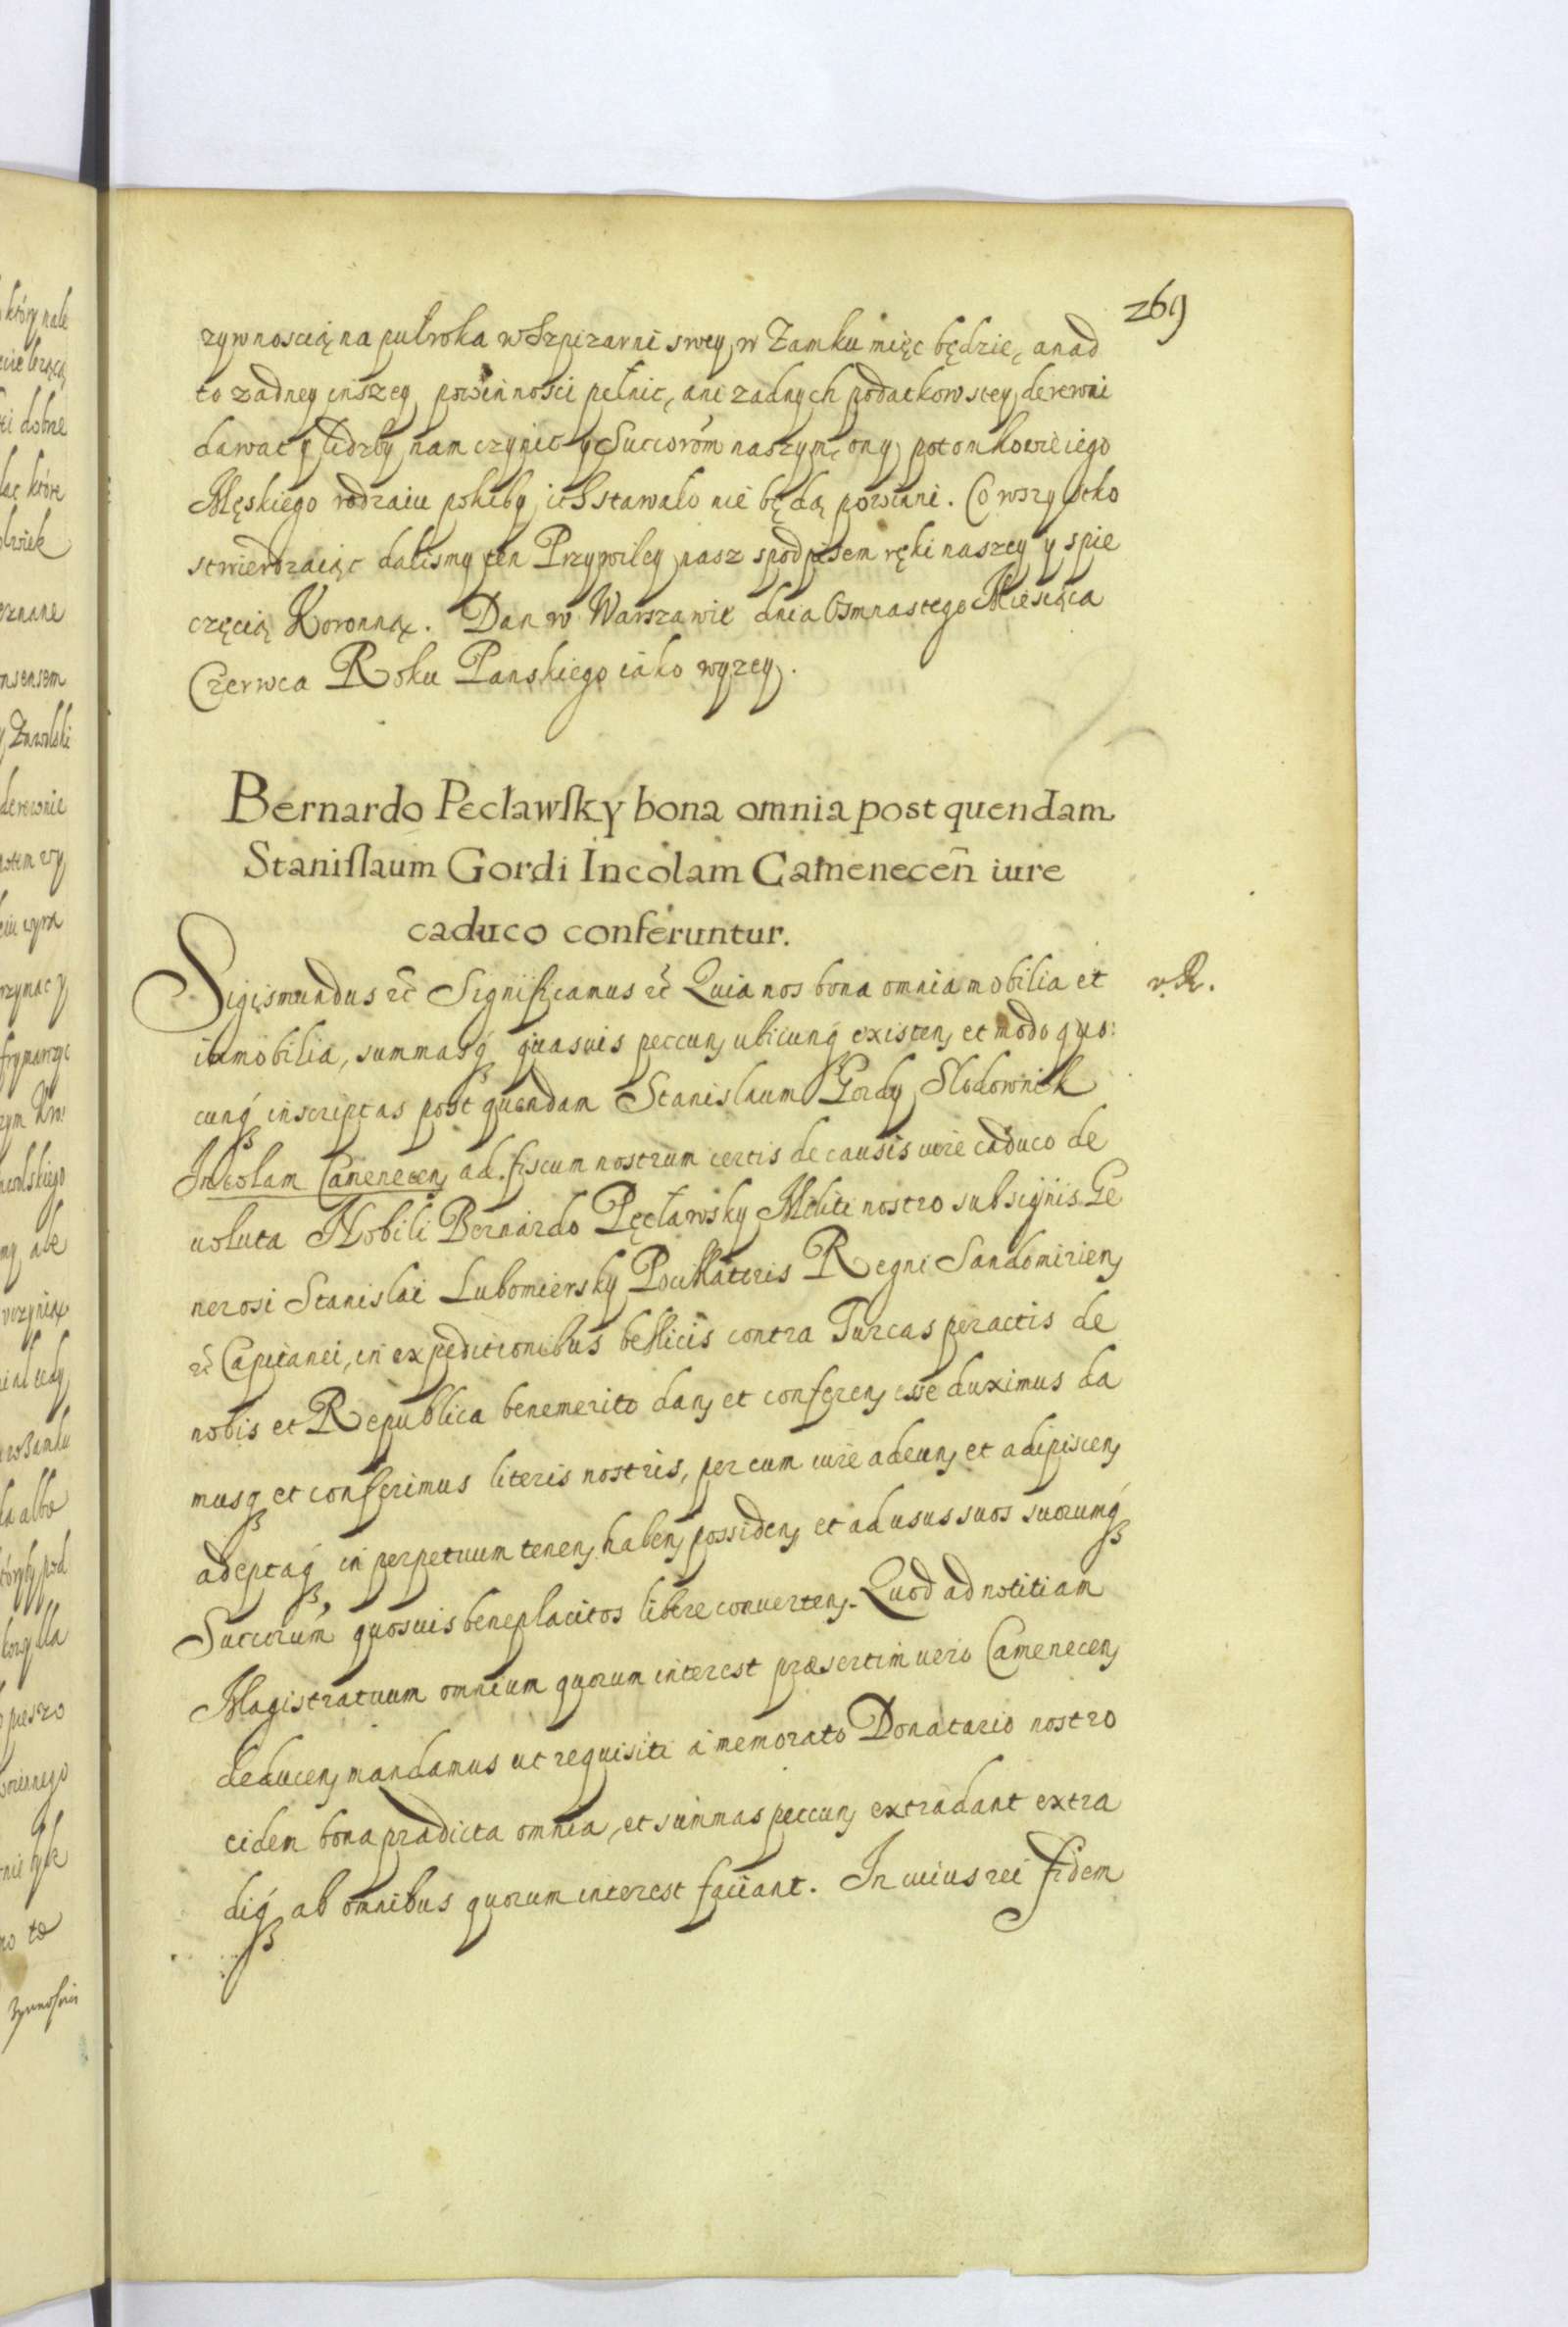 269
zywnoscią na pułroka w Szpizarni swey w Zamku mięc będzie, a nad
to zadney inszey powinnosci pełnic, ani zadnych podatkow stey derewni
dawac y lidzby nam czynic y Succorōm naszym, ony potomkowie iego
Męskiego rodzaiu pokiby ich stawało nie będą powinni. Co wszystko
stwierdzaiąc dalismy ten Przywiley nasz spodpisem ręki naszey y spie
częcią Koronną. Dan w Warszawie dnia Osmnastego Miesiąca
Czerwca Roku Panskiego iako wyzey.
Bernardo Pecławsky bona omnia post quendam
Stanislaum Gordi Incolam Camenecen̄ iure
caduco conferuntur.
Sigismundus etc̄ Significamus etc̄ Quia nos bona omnia mobilia et
immobilia, summasq́ quasuis peccun, ubicunq́ existen, et modo quo:
cunq́ inscriptas post quendam Stanislaum Gordy Slodownik
Incolam Camenecen, ad fiscum nostrum certis de causis iure caduco de
uoluta Nobili Bernardo Pęcławsky Militi nostro sub signis Ge
nerosi Stanislai Lubomiersky Pocillatoris Regni Sandomirien,
etc̄ Capitanei, in expeditionibus bellicis contra Turcas peractis de
nobis et Republica benemerito dan, et conferen, esse duximus da
musq́ et conferimus literis nostris, per eum iure adeun, et adipiscen,
adeptaq́ in perpetuum tenen, haben, possiden, et ad usus suos suorumq́
Succorum̄ quosuis beneplacitos libere conuerten,. Quod ad notitiam
Magistratuum omnium quorum interest præsertim uero Camenecen,
deducen, mandamus ut requisiti à memorato Donatario nostro
eidem bona prædicta omnia, et summas peccun, extradant extra
diq́ ab omnibus quorum interest faciant. In cuius rei fidem
v. R.